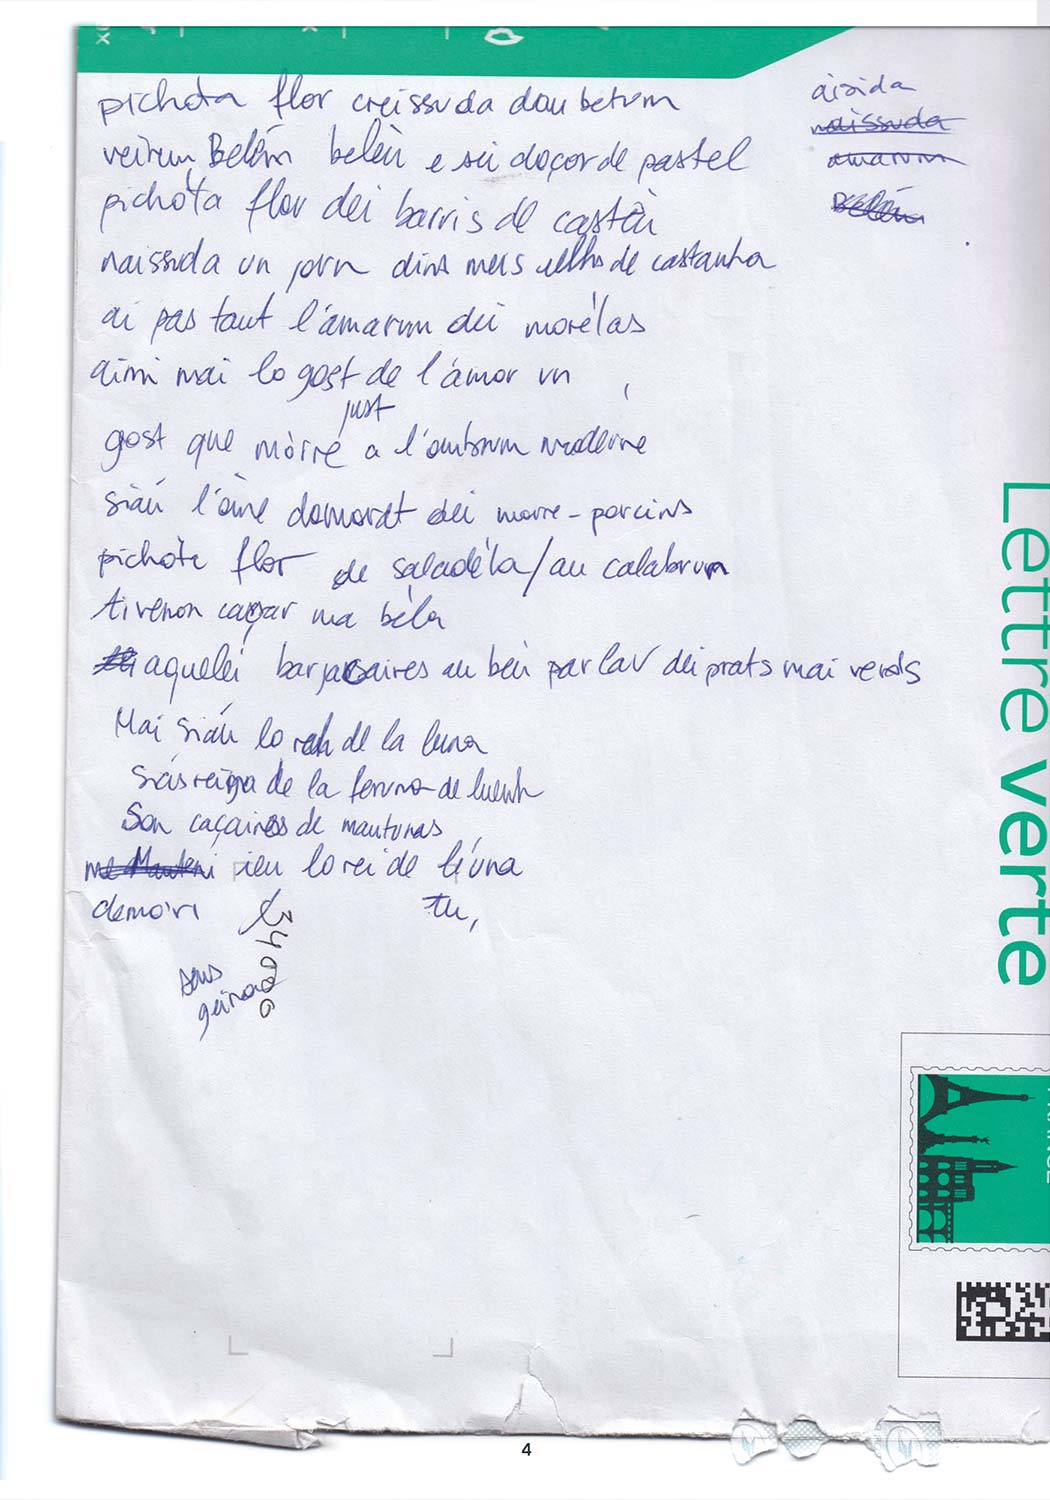 pichòta flor creissuda dau betum
veirem Belèm belèu e sei doçor de pastel
pichòta flor dei barris de castèu
naissuda un jorn dins meis uelhs de castanha
ai pas taut l'amarum dei morélas
aimi mai lo gost de l'amor un
just
gost que mòrre a l'ombrum moderne
siáu l'aine damorat dei morre-porcins
pichòta flor de saladèla/au calabrun
ti venon caçar ma bèla
aquelei barjacaires au bèu parlar dei prats mai verds
Mai siáu lo rei de la luna
siás reina de la feruna de luenh
Son caçaires de mautunas
ieu lo rei de l'una
demòri tu,
sens
34000
aisida
naissuda
amarum
Belém
Lettre verte
FRANCE
4